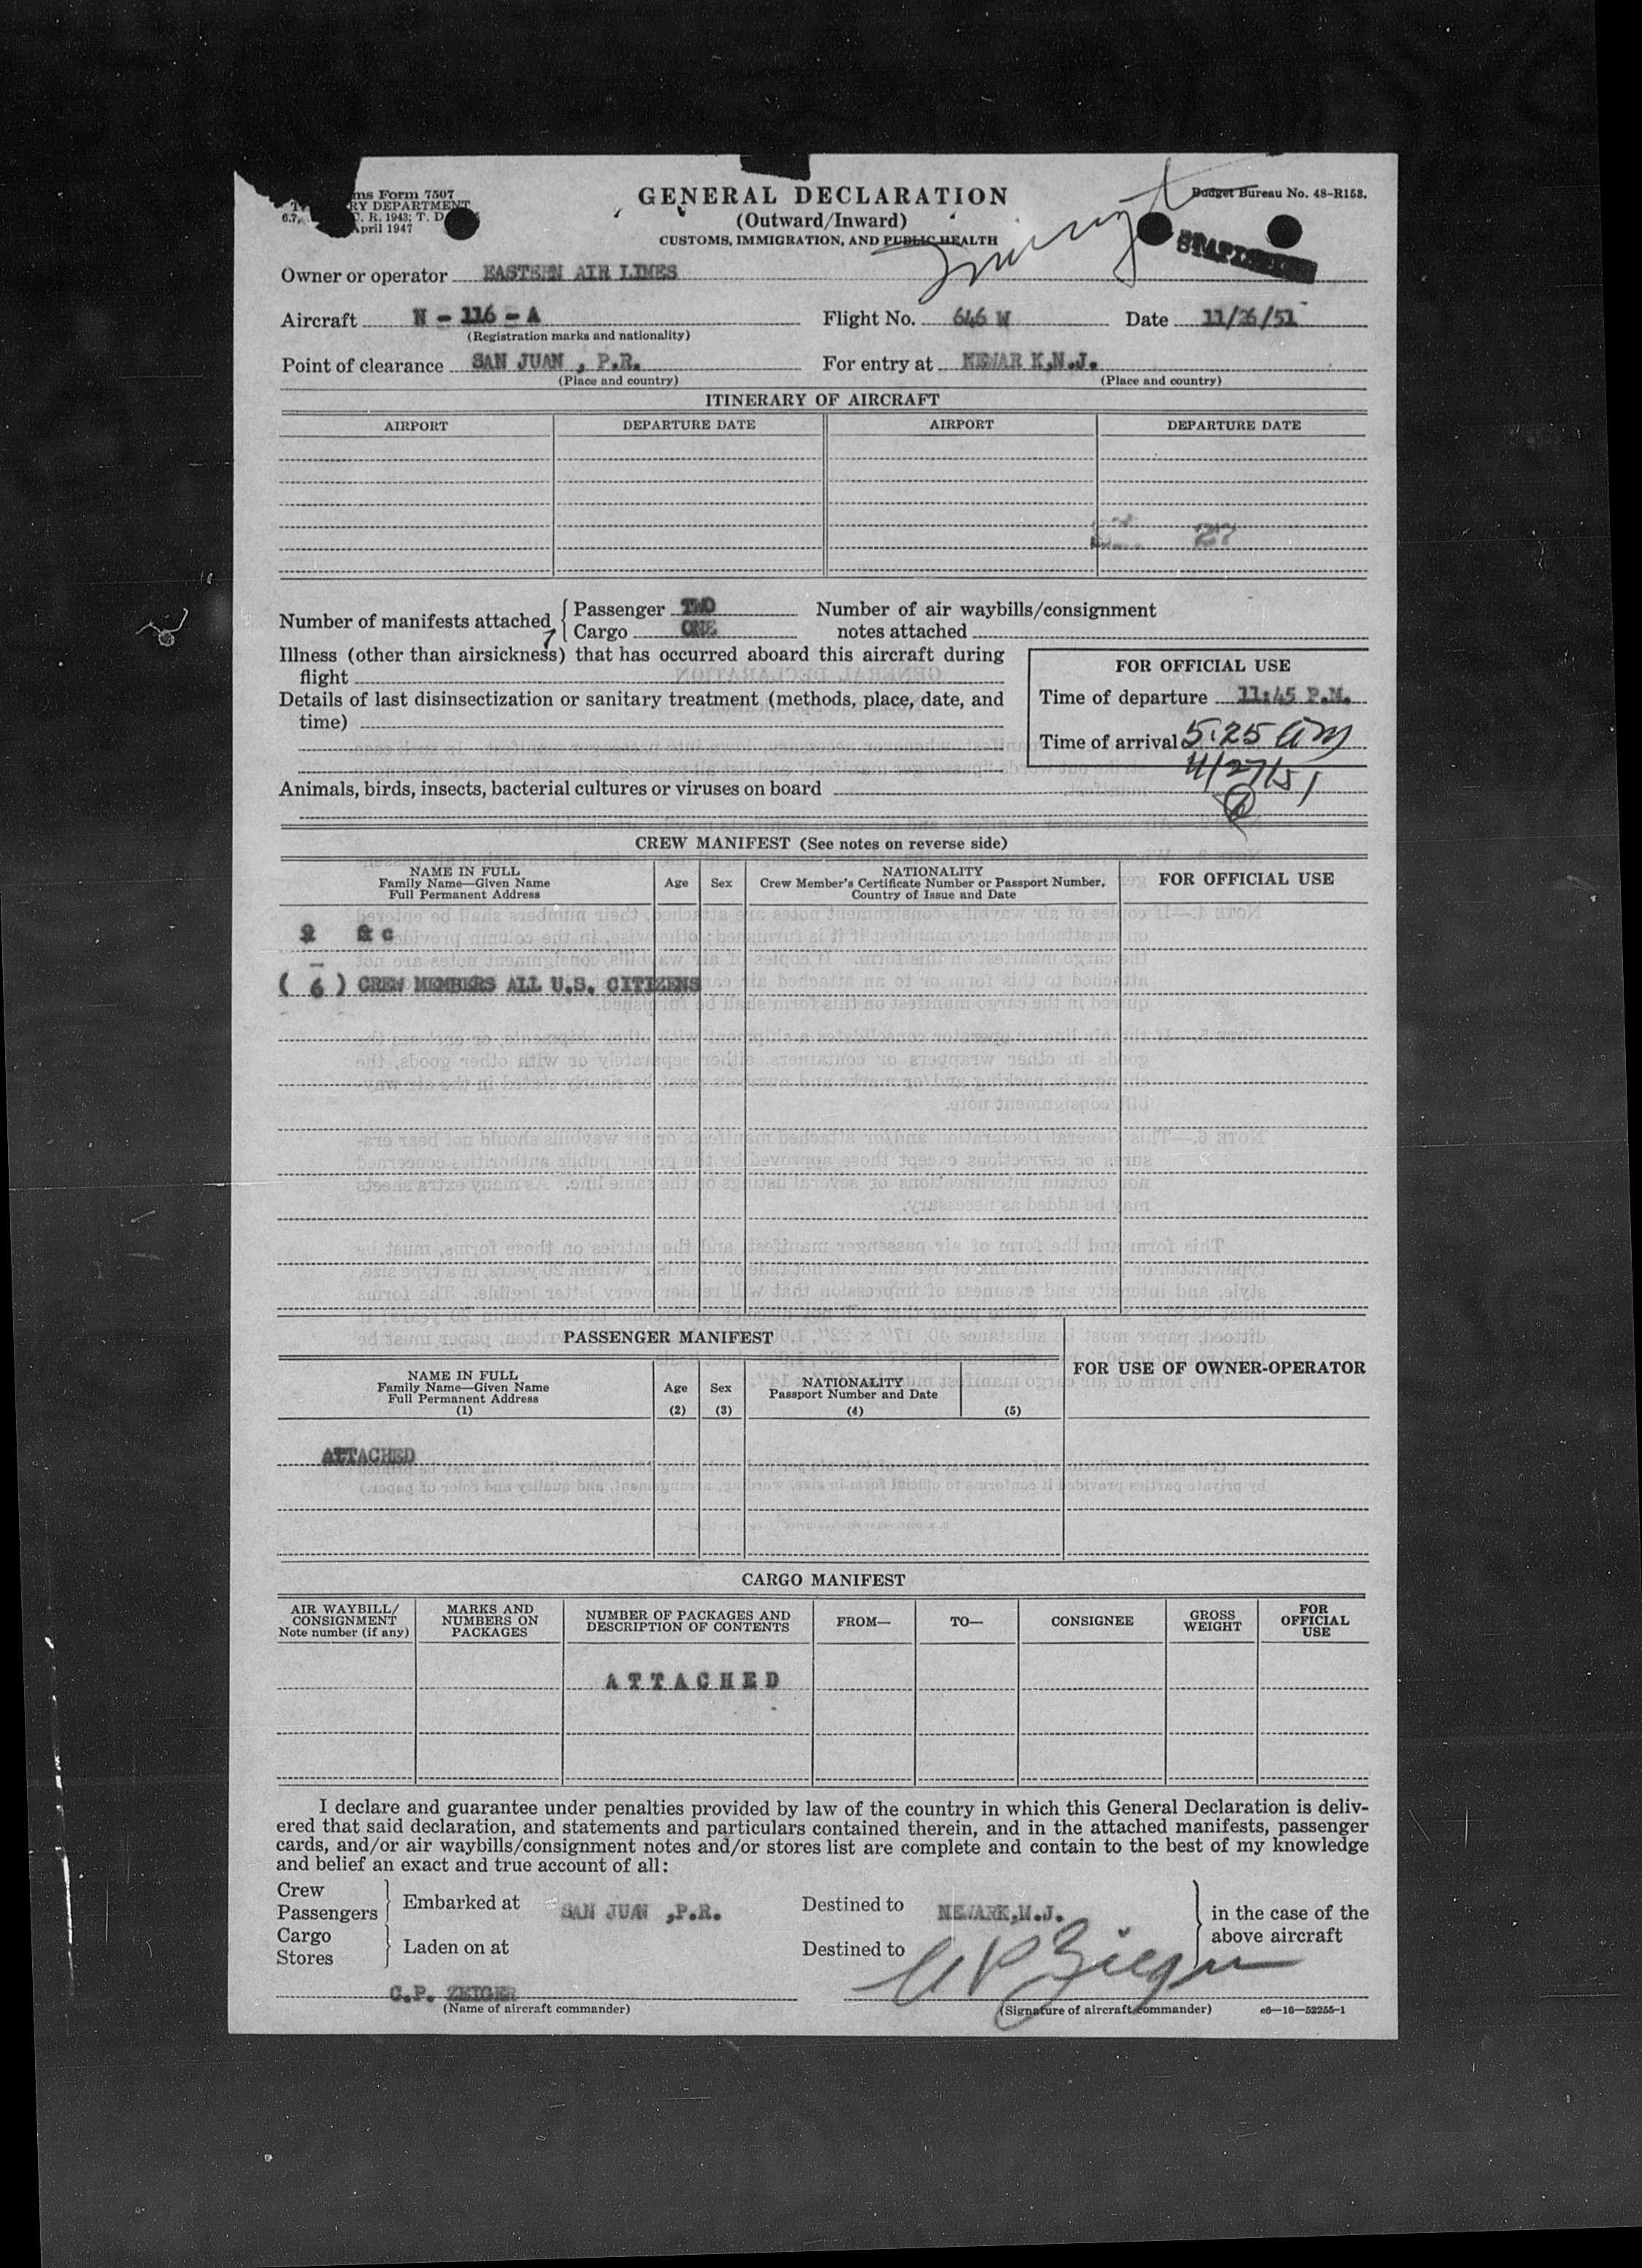 ms Form 7507
RY DEPARTMENT
C. R. 1943; T. D.
April 1947
GENERAL DECLARATION
(Outward/Inward)
CUSTOMS, IMMIGRATION, AND PUBLIC HEALTH
Budget Bureau No. 48-R153.
Owner or operator EASTERN AIR LINES
Aircraft N - 116 - A Flight No. 646 W Date 11/26/51
(Registration marks and nationality)
Point of clearance SAN JUAN , P.R. For entry at NEWAR K,N.J.
(Place and country) (Place and country)
ITINERARY OF AIRCRAFT
AIRPORT DEPARTURE DATE AIRPORT DEPARTURE DATE
27
Number of manifests attached Passenger TWO Number of air waybills/consignment
Cargo ONE notes attached
Illness (other than airsickness) that has occurred aboard this aircraft during
flight
Details of last disinsectization or sanitary treatment (methods, place, date, and
time)
FOR OFFICIAL USE
Time of departure 11:45 P.M.
Time of arrival 5:25 am
11/27/51
Animals, birds, insects, bacterial cultures or viruses on board
CREW MANIFEST (See notes on reverse side)
NAME IN FULL
Family Name—Given Name
Full Permanent Address
Age Sex
NATIONALITY
Crew Member's Certificate Number or Passport Number,
Country of Issue and Date
FOR OFFICIAL USE
( 6 ) CREW MEMBERS ALL U.S. CITIZENS
PASSENGER MANIFEST
FOR USE OF OWNER-OPERATOR
NAME IN FULL
Family Name—Given Name
Full Permanent Address
(1)
Age
(2)
Sex
(3)
NATIONALITY
Passport Number and Date
(4)
(5)
ATTACHED
CARGO MANIFEST
AIR WAYBILL/
CONSIGNMENT
Note number (if any)
MARKS AND
NUMBERS ON
PACKAGES
NUMBER OF PACKAGES AND
DESCRIPTION OF CONTENTS
FROM—
TO—
CONSIGNEE
GROSS
WEIGHT
FOR
OFFICIAL
USE
A T T A C H E D
I declare and guarantee under penalties provided by law of the country in which this General Declaration is deliv-
ered that said declaration, and statements and particulars contained therein, and in the attached manifests, passenger
cards, and/or air waybills/consignment notes and/or stores list are complete and contain to the best of my knowledge
and belief an exact and true account of all:
Crew
Passengers Embarked at SAN JUAN ,P.R. Destined to NEWARK,N.J. in the case of the
Cargo above aircraft
Stores Laden on at Destined to
C.P. ZEIGER
(Name of aircraft commander) (Signature of aircraft commander) c6—16—52255-1